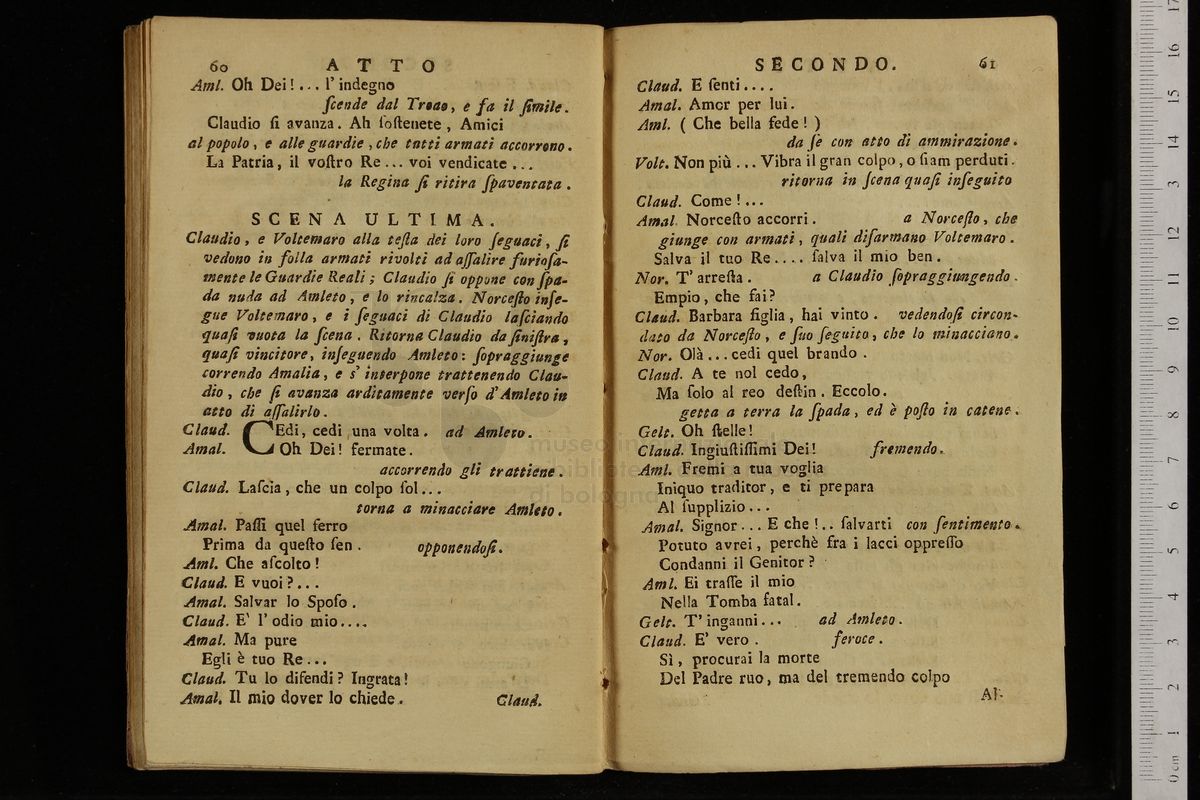 60 ATTO
Aml. Oh Dei!... l'indegno
ſcende dal Trono, e fa il ſimile.
Claudio ſi avanza. Ah ſoſtenete, Amici
al popolo, e alle guardie, che tutti armati accorrono.
La Patria, il voſtro Re... voi vendicate...
la Regina ſi ritira ſpaventata.
SCENA ULTIMA.
Claudio, e Voltemaro alla teſta dei loro ſeguaci, ſi
vedono in folla armati rivolti ad aſſalire furioſa-
mente le Guardie Reali; Claudio ſi oppone con ſpa-
da nuda ad Amleto, e lo rincalza. Norceſto inſe-
gue Voltemaro, e i ſeguaci di Claudio laſciando
quaſi vuota la ſcena. Ritorna Claudio da ſiniſtra,
quaſi vincitore, inſeguendo Amleto: ſopraggiunge
correndo Amalia, e s' interpone trattenendo Clau-
dio, che ſi avanza arditamente verſo d'Amleto in
atto di aſſalirlo.
Claud. CEdi, cedi una volta. ad Amleto.
Amal. Oh Dei! fermate.
accorrendo gli trattiene.
Claud. Laſcia, che un colpo ſol...
torna a minacciare Amleto.
Amal. Paſſi quel ferro
Prima da queſto ſen. opponendoſi.
Aml. Che aſcolto!
Claud. E vuoi?...
Amal. Salvar lo Spoſo.
Claud. E' l'odio mio....
Amal. Ma pure
Egli è tuo Re...
Claud. Tu lo difendi? Ingrata!
Amal. Il mio dover lo chiede.
Claud.
SECONDO. 61
Claud. E ſenti....
Amal. Amor per lui.
Aml. ( Che bella fede! )
da ſè con atto di ammirazione.
Volt. Non più... Vibra il gran colpo, o ſiam perduti.
ritorna in ſcena quaſi inſeguito
Claud. Come!...
Amal. Norceſto accorri. a Norceſto, che
giunge con armati, quali diſarmano Voltemaro.
Salva il tuo Re.... ſalva il mio ben.
Nor. T'arreſta. a Claudio ſopraggiungendo.
Empio, che fai?
Claud. Barbara figlia, hai vinto. vedendoſi circon-
dato da Norceſto, e ſuo ſeguito, che lo minacciano.
Nor. Olà... cedi quel brando.
Claud. A te nol cedo,
Ma ſolo al reo deſtin. Eccolo.
getta a terra la ſpada, ed è poſto in catene.
Gelt. Oh ſtelle!
Claud. Ingiuſtiſſimi Dei! fremendo.
Aml. Fremi a tua voglia
Iniquo traditor, e ti prepara
Al ſupplizio...
Amal. Signor... E che!.. ſalvarti con ſentimento.
Potuto avrei, perchè fra i lacci oppreſſo
Condanni il Genitor?
Aml. Ei traſſe il mio
Nella Tomba fatal.
Gelt. T'inganni... ad Amleto.
Claud. E' vero. feroce.
Sì, procurai la morte
Del Padre tuo, ma del tremendo colpo
Al-
museo internazionale
biblioteca
di bologna
0 cm 1 2 3 4 5 6 7 8 9 10 11 12 13 14 15 16 17